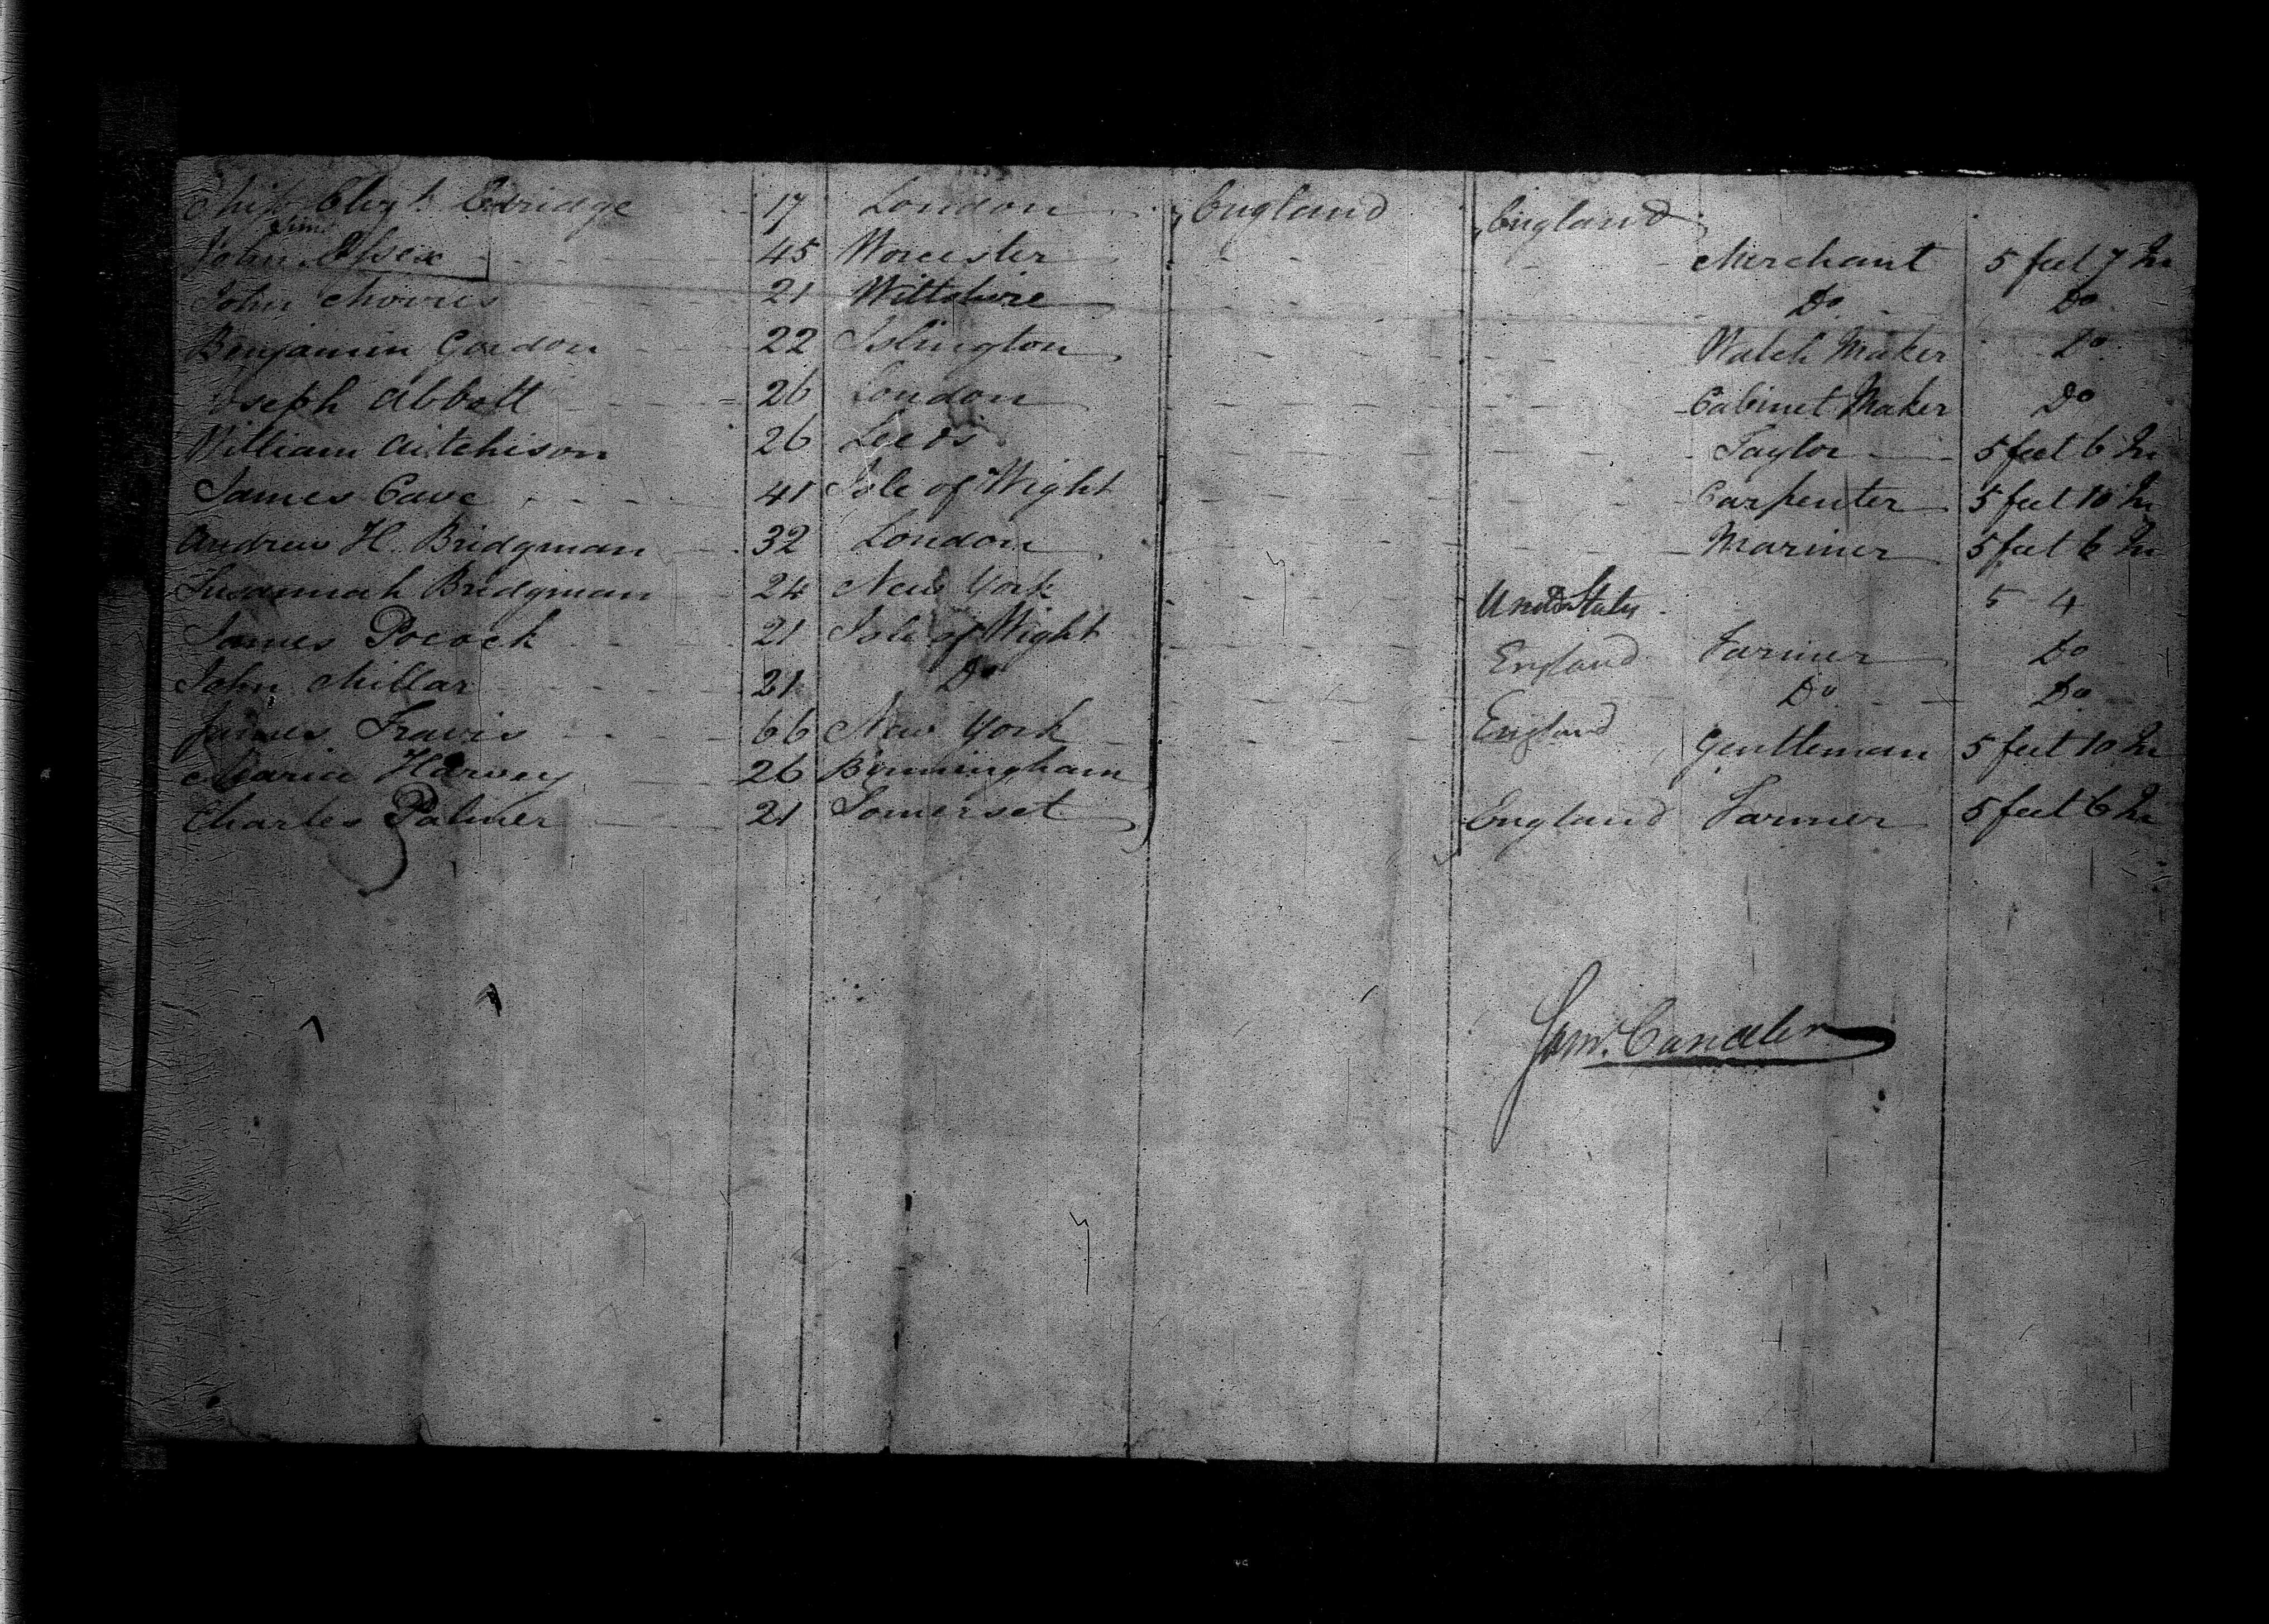 Miss Elizth. Edridge 17 London England England
John Junr. Essex 45 Worcester Merchant 5 feet 7 In
John Morris 21 Wiltshire Do Do
Benjamin Gordon 22 Islington Watch Maker Do
Joseph Abbott 26 London Cabinet Maker Do
William Aitchison 26 Leeds Taylor 5 feet 6 In
James Cave 41 Isle of Wight Carpenter 5 feet 10 In
Andrew H. Bridgman 32 London Mariner 5 feet 6 In
Susannah Bridgman 24 New York United States 5 4
James Pocock 21 Isle of Wight England Farmer Do
John Millar 21 Do Do Do
James Travis 66 New York England Gentleman 5 feet 10 In
Maria Harvey 26 Birmingham
Charles Palmer 21 Somerset England Farmer 5 feet 6 In
Saml. Candler